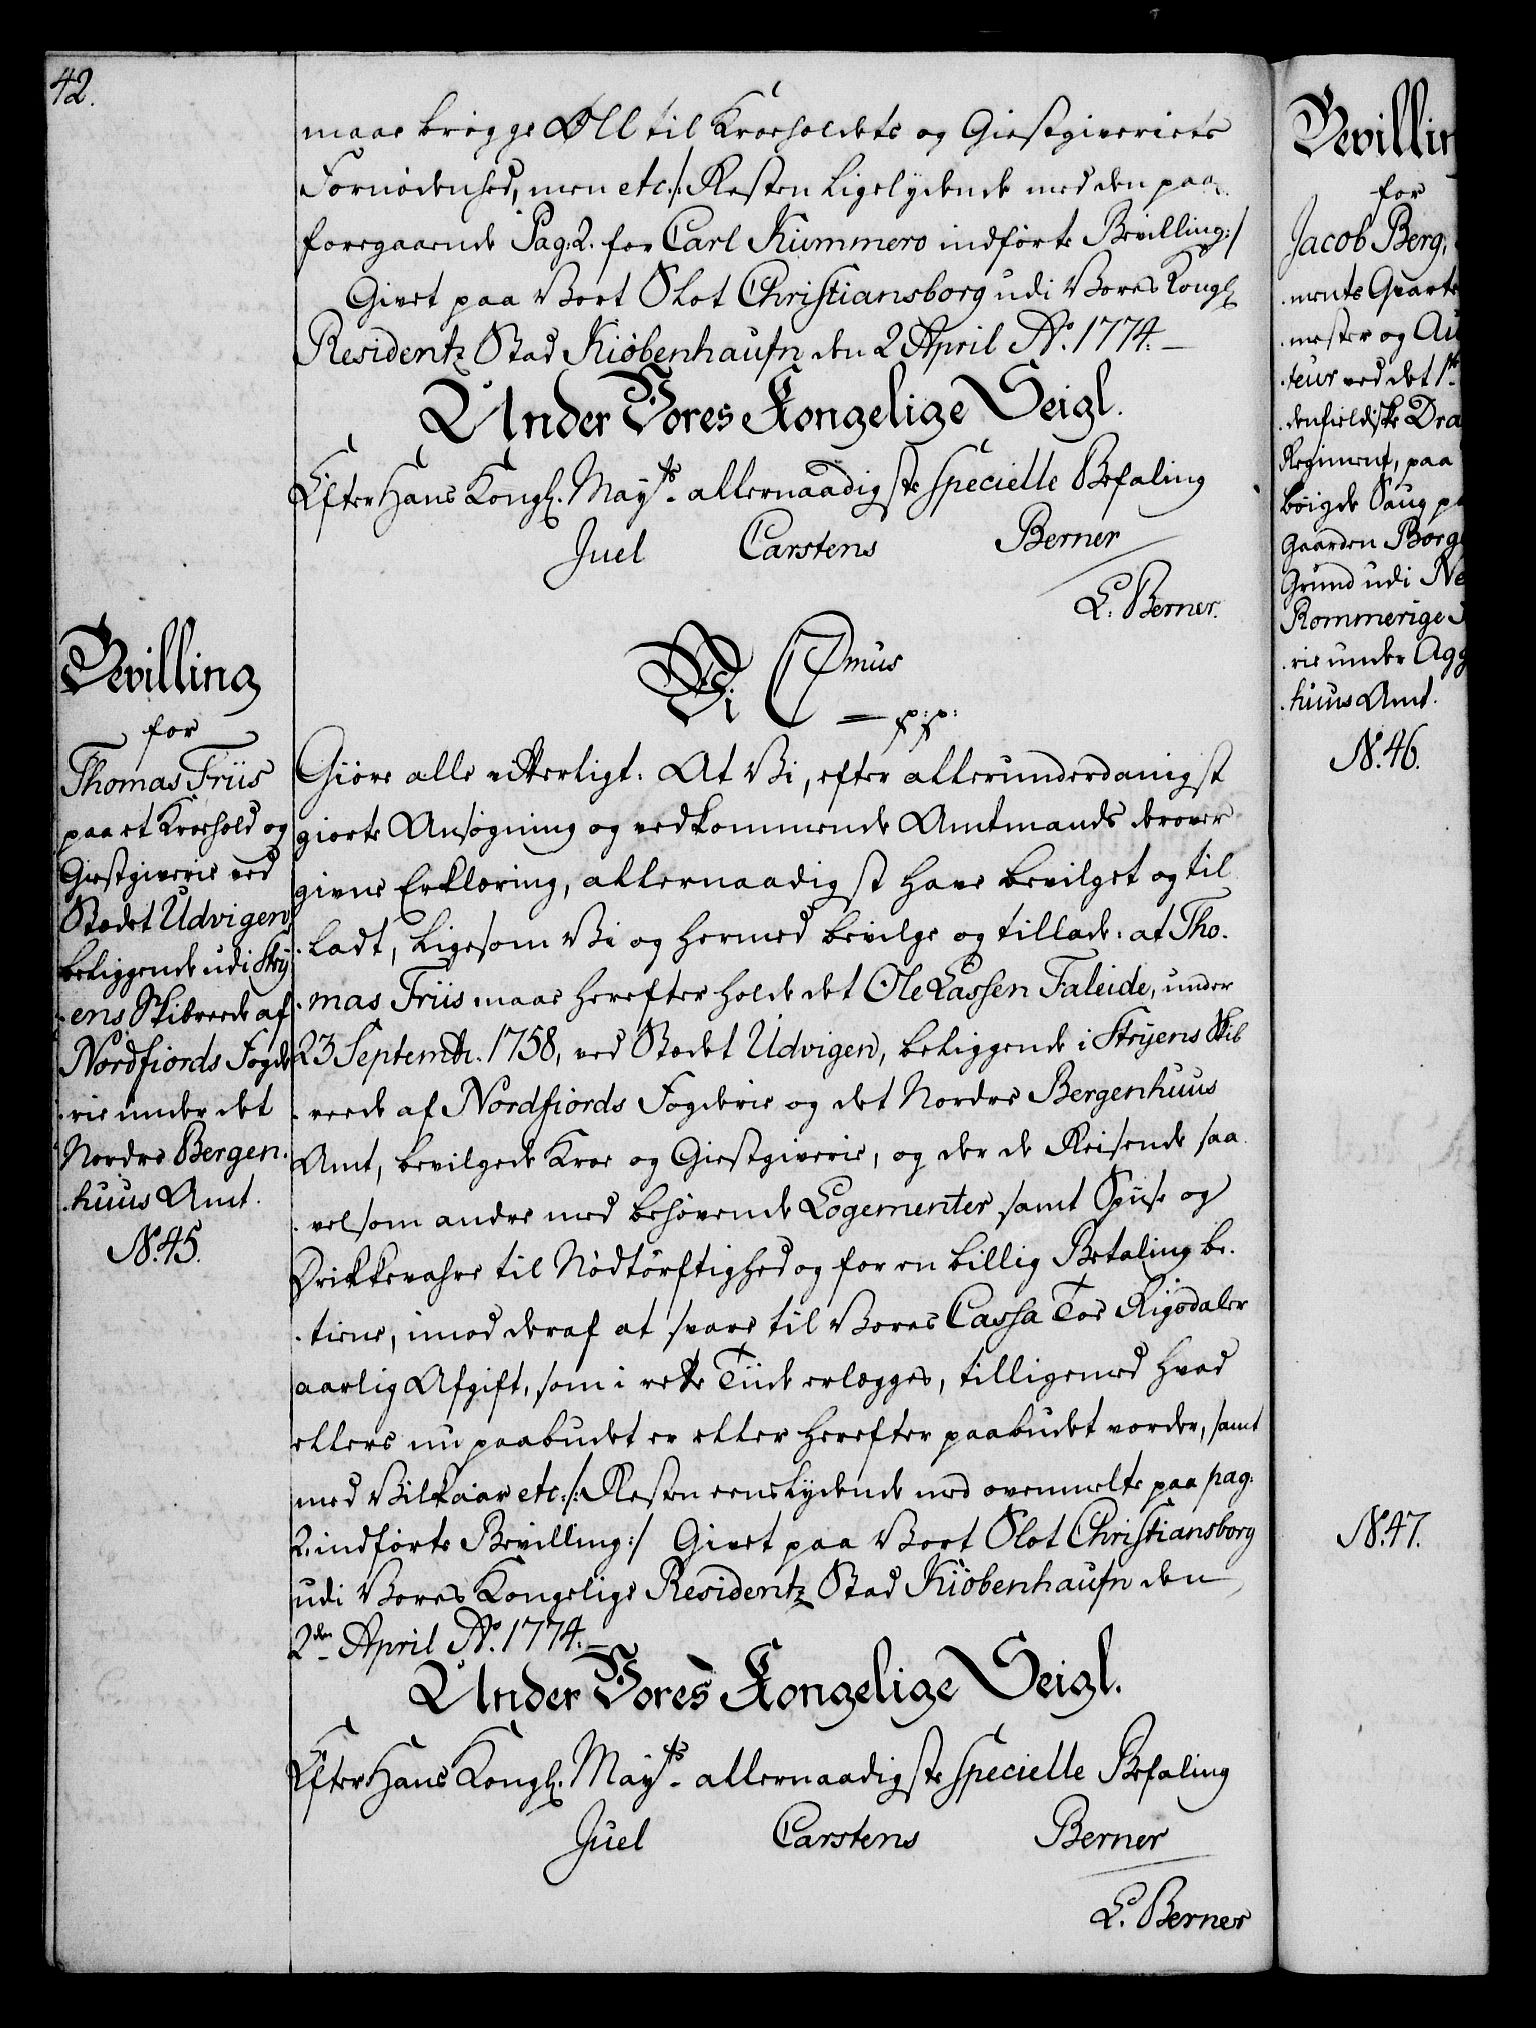 42.
maae brøgge Øll til Kroeholdets og Giestgiveriets
Fornødenhed, men etc:/: Resten Ligelydende med den paa
foregaaende Pag: 2. for Carl Kummero indførte Bevilling:/
Givet paa Vort Slot Christiansborg udi Vores Kongl.
Residentz Stad Kiøbenhaufn den 2 April Ao. 1774.
Under Vores Kongelige Seigl.
Efter Hans Kongl. Mayts. allernaadigste specielle Befaling
Juel Carstens Berner
L. Berner.
Bevilling
for
Thomas Friis
paa et Kroehold og
Giestgiverie ved
Stædet Udvigen,
beliggende udi Stry
ens Skibreede af
Nordfiords Fogde
rie under det
Nordre Bergen.
huus Amt.
No. 45.
Vi C 7mus
p:p:
Giøre alle vitterligt: At Vi, efter allerunderdanigst
giorte Ansøgning og vedkommende Amtmands derover
givne Erklæring, allernaadigst have bevilget og til
ladt, Ligesom Vi og hermed bevilge og tillade: at Tho.
mas Friis maae herefter holde det Ole Lassen Faleide, under
23 Septembr. 1758, ved Stædet Udvigen, beliggende i Stryens Skib
reede af Nordfiords Fogderie og det Nordre Bergenhuus
Amt, bevilgede Kroe og Giestgiverie, og der de Reisende saa
velsom andre med behøvende Logementer samt Spiise og
Drikkevahre til Nødtørftighed og for en billig Betaling be.
tiene, imod deraf at svare til Vores Cassa Toe Rigsdaler
aarlig Afgift, som i rette Tiide erlægges, tilligemed hvad
ellers nu paabudet er eller herefter paabudet vorder, samt
med Vilkaar etc:/: Resten eenslydende med ovenmelte paa pag:
2. indførte Bevilling:/ Givet paa Vort Slot Christiansborg
udi Vores Kongelige Residentz Stad Kiøbenhaufn den
2den April Ao. 1774.
Under Vores Kongelige Seigl.
Efter Hans Kongl. Mayts. allernaadigste specielle Befaling
Juel Carstens Berner
L. Berner
Bevillin
for
Jacob Berg,
ments Qvarte
mester og Au
teur ved det 1ste
denfieldske Dra
Regiment, paa
bøigde Saug p
Gaarden Borge
Grund udi Ne
Rommerige
rie under Agg
huus Amt.
No. 46.
No. 47.